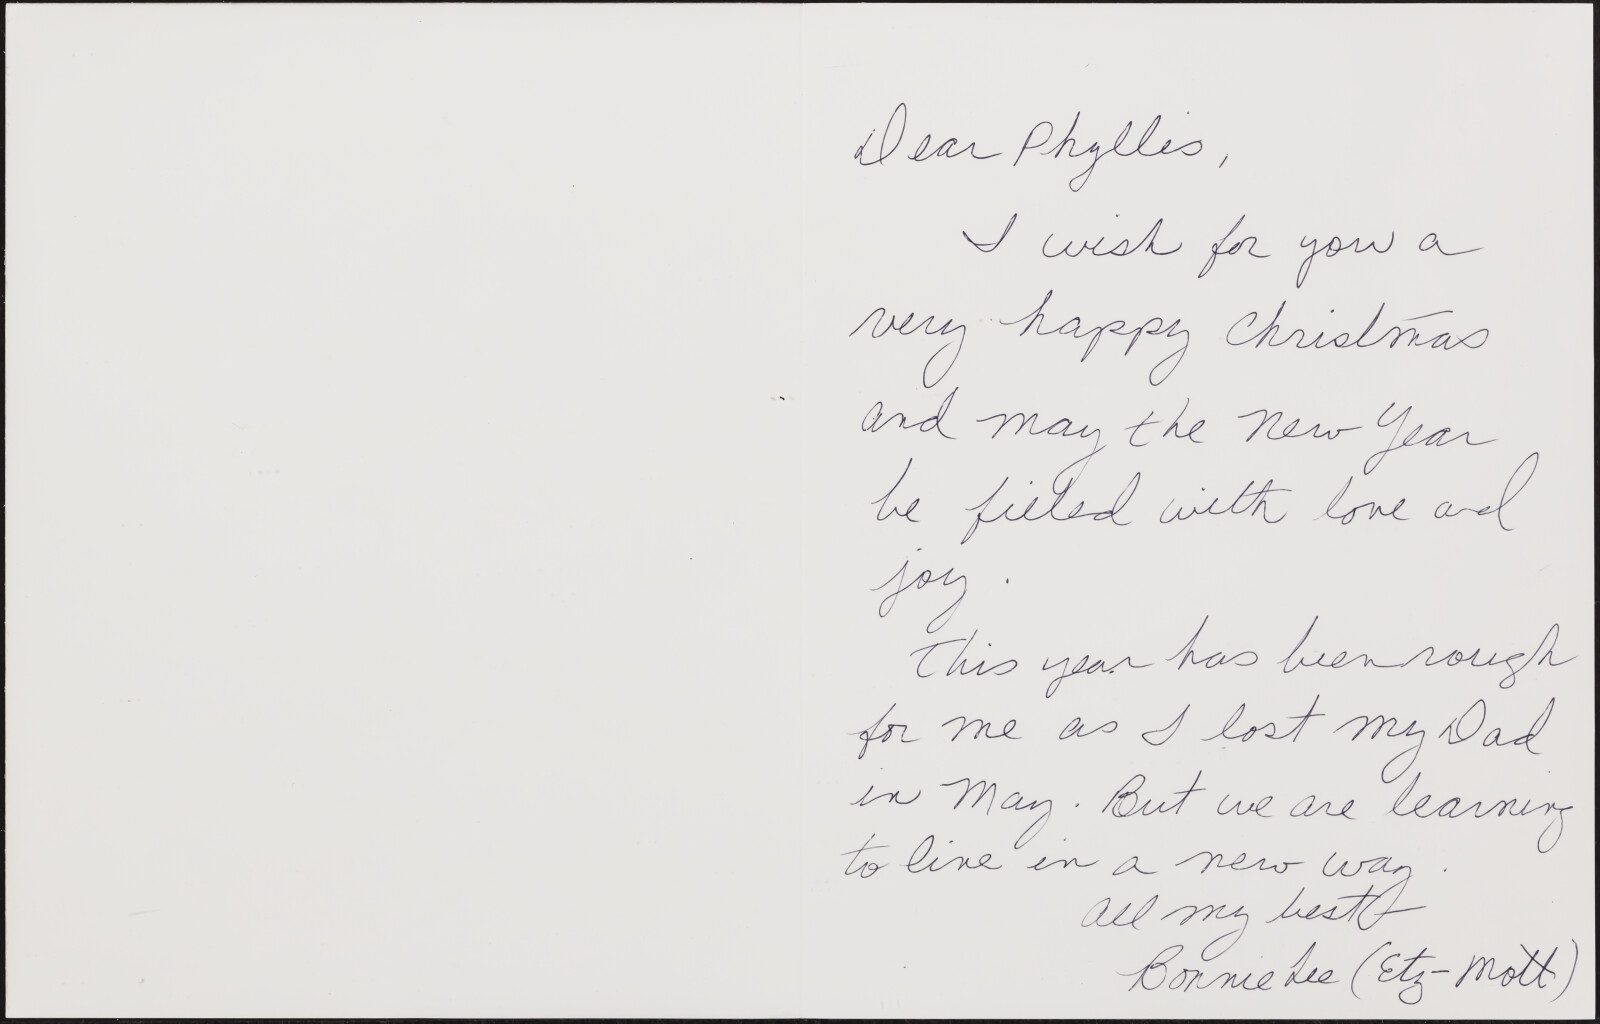 Dear Phyllis,
I wish for you a
very happy Christmas
and may the New Year
be filled with love and
joy.
This year has been rough
for me as I lost my Dad
in May. But we are learning
to live in a new way.
All my best
Bonnie Lee (Etz-Mott)